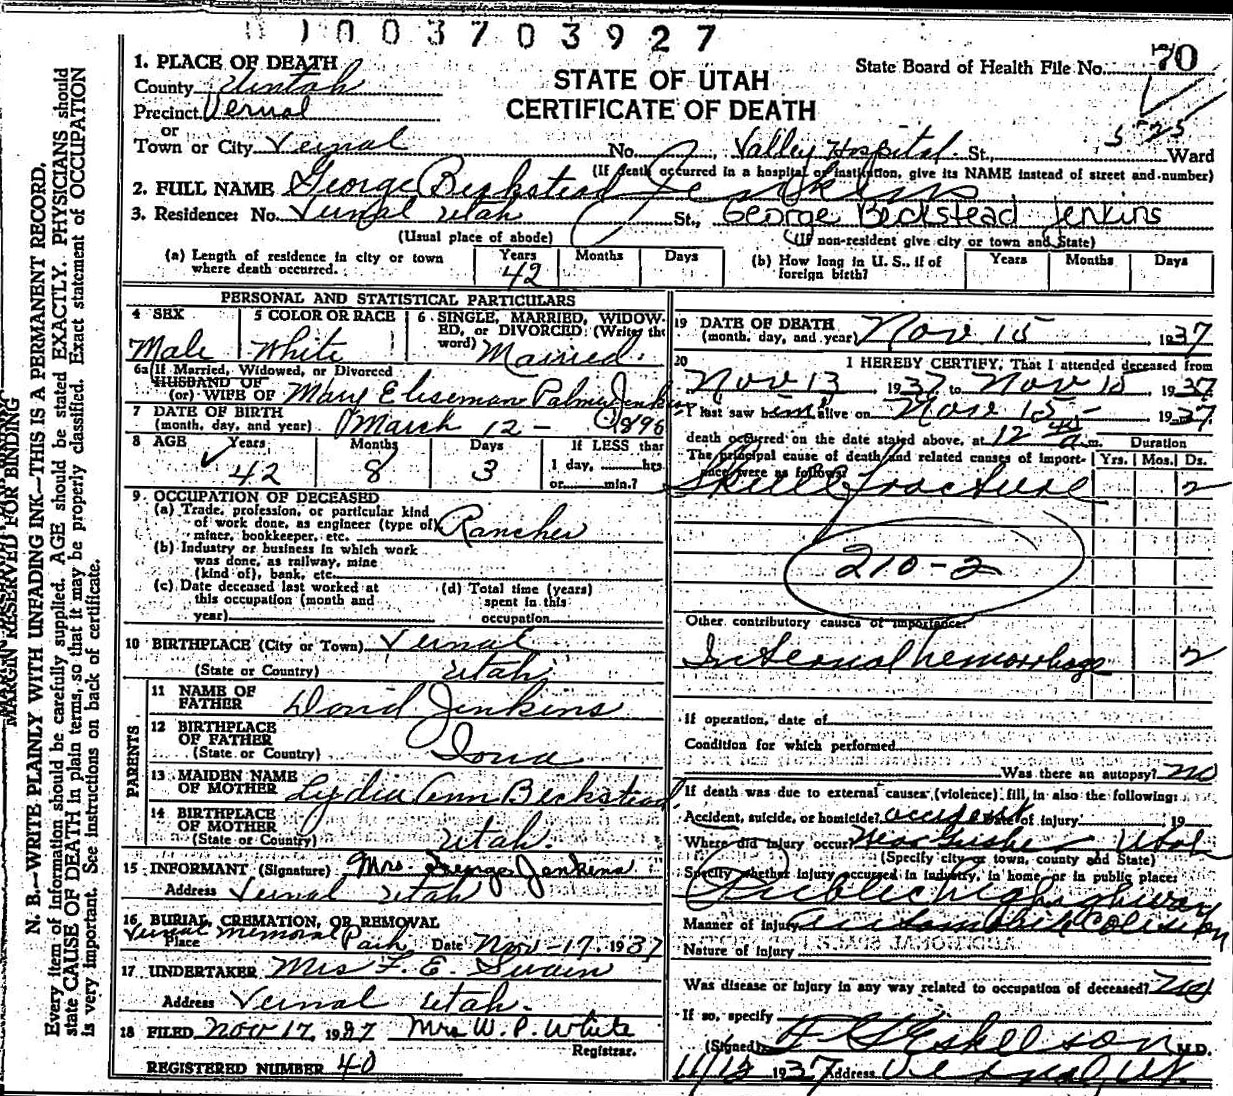 1003703927
1. PLACE OF DEATH
County Uintah
Precinct Vernal
or
Town or City Vernal
STATE OF UTAH
CERTIFICATE OF DEATH
State Board of Health File No. 70
5-25
No. Valley Hospital St., Ward
(If death occurred in a hospital or institution, give its NAME instead of street and number)
2. FULL NAME George Beckstead Jenkins
3. Residence: No. Vernal Utah St., George Beckstead Jenkins
(Usual place of abode) (If non-resident give city or town and State)
(a) Length of residence in city or town where death occurred. Years 42 Months Days
(b) How long in U. S., if of foreign birth? Years Months Days
PERSONAL AND STATISTICAL PARTICULARS
4 SEX Male
5 COLOR OR RACE White
6 SINGLE, MARRIED, WIDOWED, or DIVORCED: (Write the word) Married.
6a (If Married, Widowed, or Divorced
HUSBAND OF
(or) WIFE OF Mary Palmer Jenkins
7 DATE OF BIRTH
(month, day, and year) March 12 - 1896
8 AGE Years 42 Months 8 Days 3 If LESS than 1 day, hrs. or min.?
9. OCCUPATION OF DECEASED
(a) Trade, profession, or particular kind
of work done, as engineer (type of)
miner, bookkeeper, etc. Rancher
(b) Industry or business in which work
was done, as railway, mine
(kind of), bank, etc.
(c) Date deceased last worked at
this occupation (month and
year)
(d) Total time (years)
spent in this
occupation
10 BIRTHPLACE (City or Town) Vernal
(State or Country) Utah
PARENTS
11 NAME OF FATHER David Jenkins
12 BIRTHPLACE OF FATHER
(State or Country) Iowa
13 MAIDEN NAME OF MOTHER Lydia Ann Beckstead
14 BIRTHPLACE OF MOTHER
(State or Country) Utah.
15 INFORMANT (Signature) Mrs George Jenkins
Address Vernal Utah
16 BURIAL, CREMATION, OR REMOVAL
Place Vernal Memorial Park Date Nov-17, 1937
17 UNDERTAKER Mrs F. E. Swain
Address Vernal Utah.
18 FILED Nov 17, 1937 Mrs W. P. White
Registrar.
REGISTERED NUMBER 40
19 DATE OF DEATH
(month, day, and year) Nov 15 1937
20 I HEREBY CERTIFY, That I attended deceased from
Nov 13 1937 to Nov 15 1937
I last saw him alive on Nov 15 - 1937
death occurred on the date stated above, at 12 45 a.m. Duration
The principal cause of death and related causes of importance were as follows: Yrs. Mos. Ds.
Skull fracture 2
210-2
Other contributory causes of importance:
Internal hemorrhage 2
If operation, date of
Condition for which performed
Was there an autopsy? no
If death was due to external causes (violence) fill in also the following:
Accident, suicide, or homicide? accident Date of injury 19
Where did injury occur? Near Gusher Utah
(Specify city or town, county and State)
Specify whether injury occurred in industry, in home, or in public place:
Public highway
Manner of injury automobile Collision
Nature of injury
Was disease or injury in any way related to occupation of deceased?
If so, specify
(Signed) Eskelson M.D.
1937 Address Vernal, Ut.
MARGIN RESERVED FOR BINDING
N. B.—WRITE PLAINLY WITH UNFADING INK—THIS IS A PERMANENT RECORD.
Every item of information should be carefully supplied. AGE should be stated EXACTLY. PHYSICIANS should
state CAUSE OF DEATH in plain terms, so that it may be properly classified. Exact statement of OCCUPATION
is very important. See instructions on back of certificate.